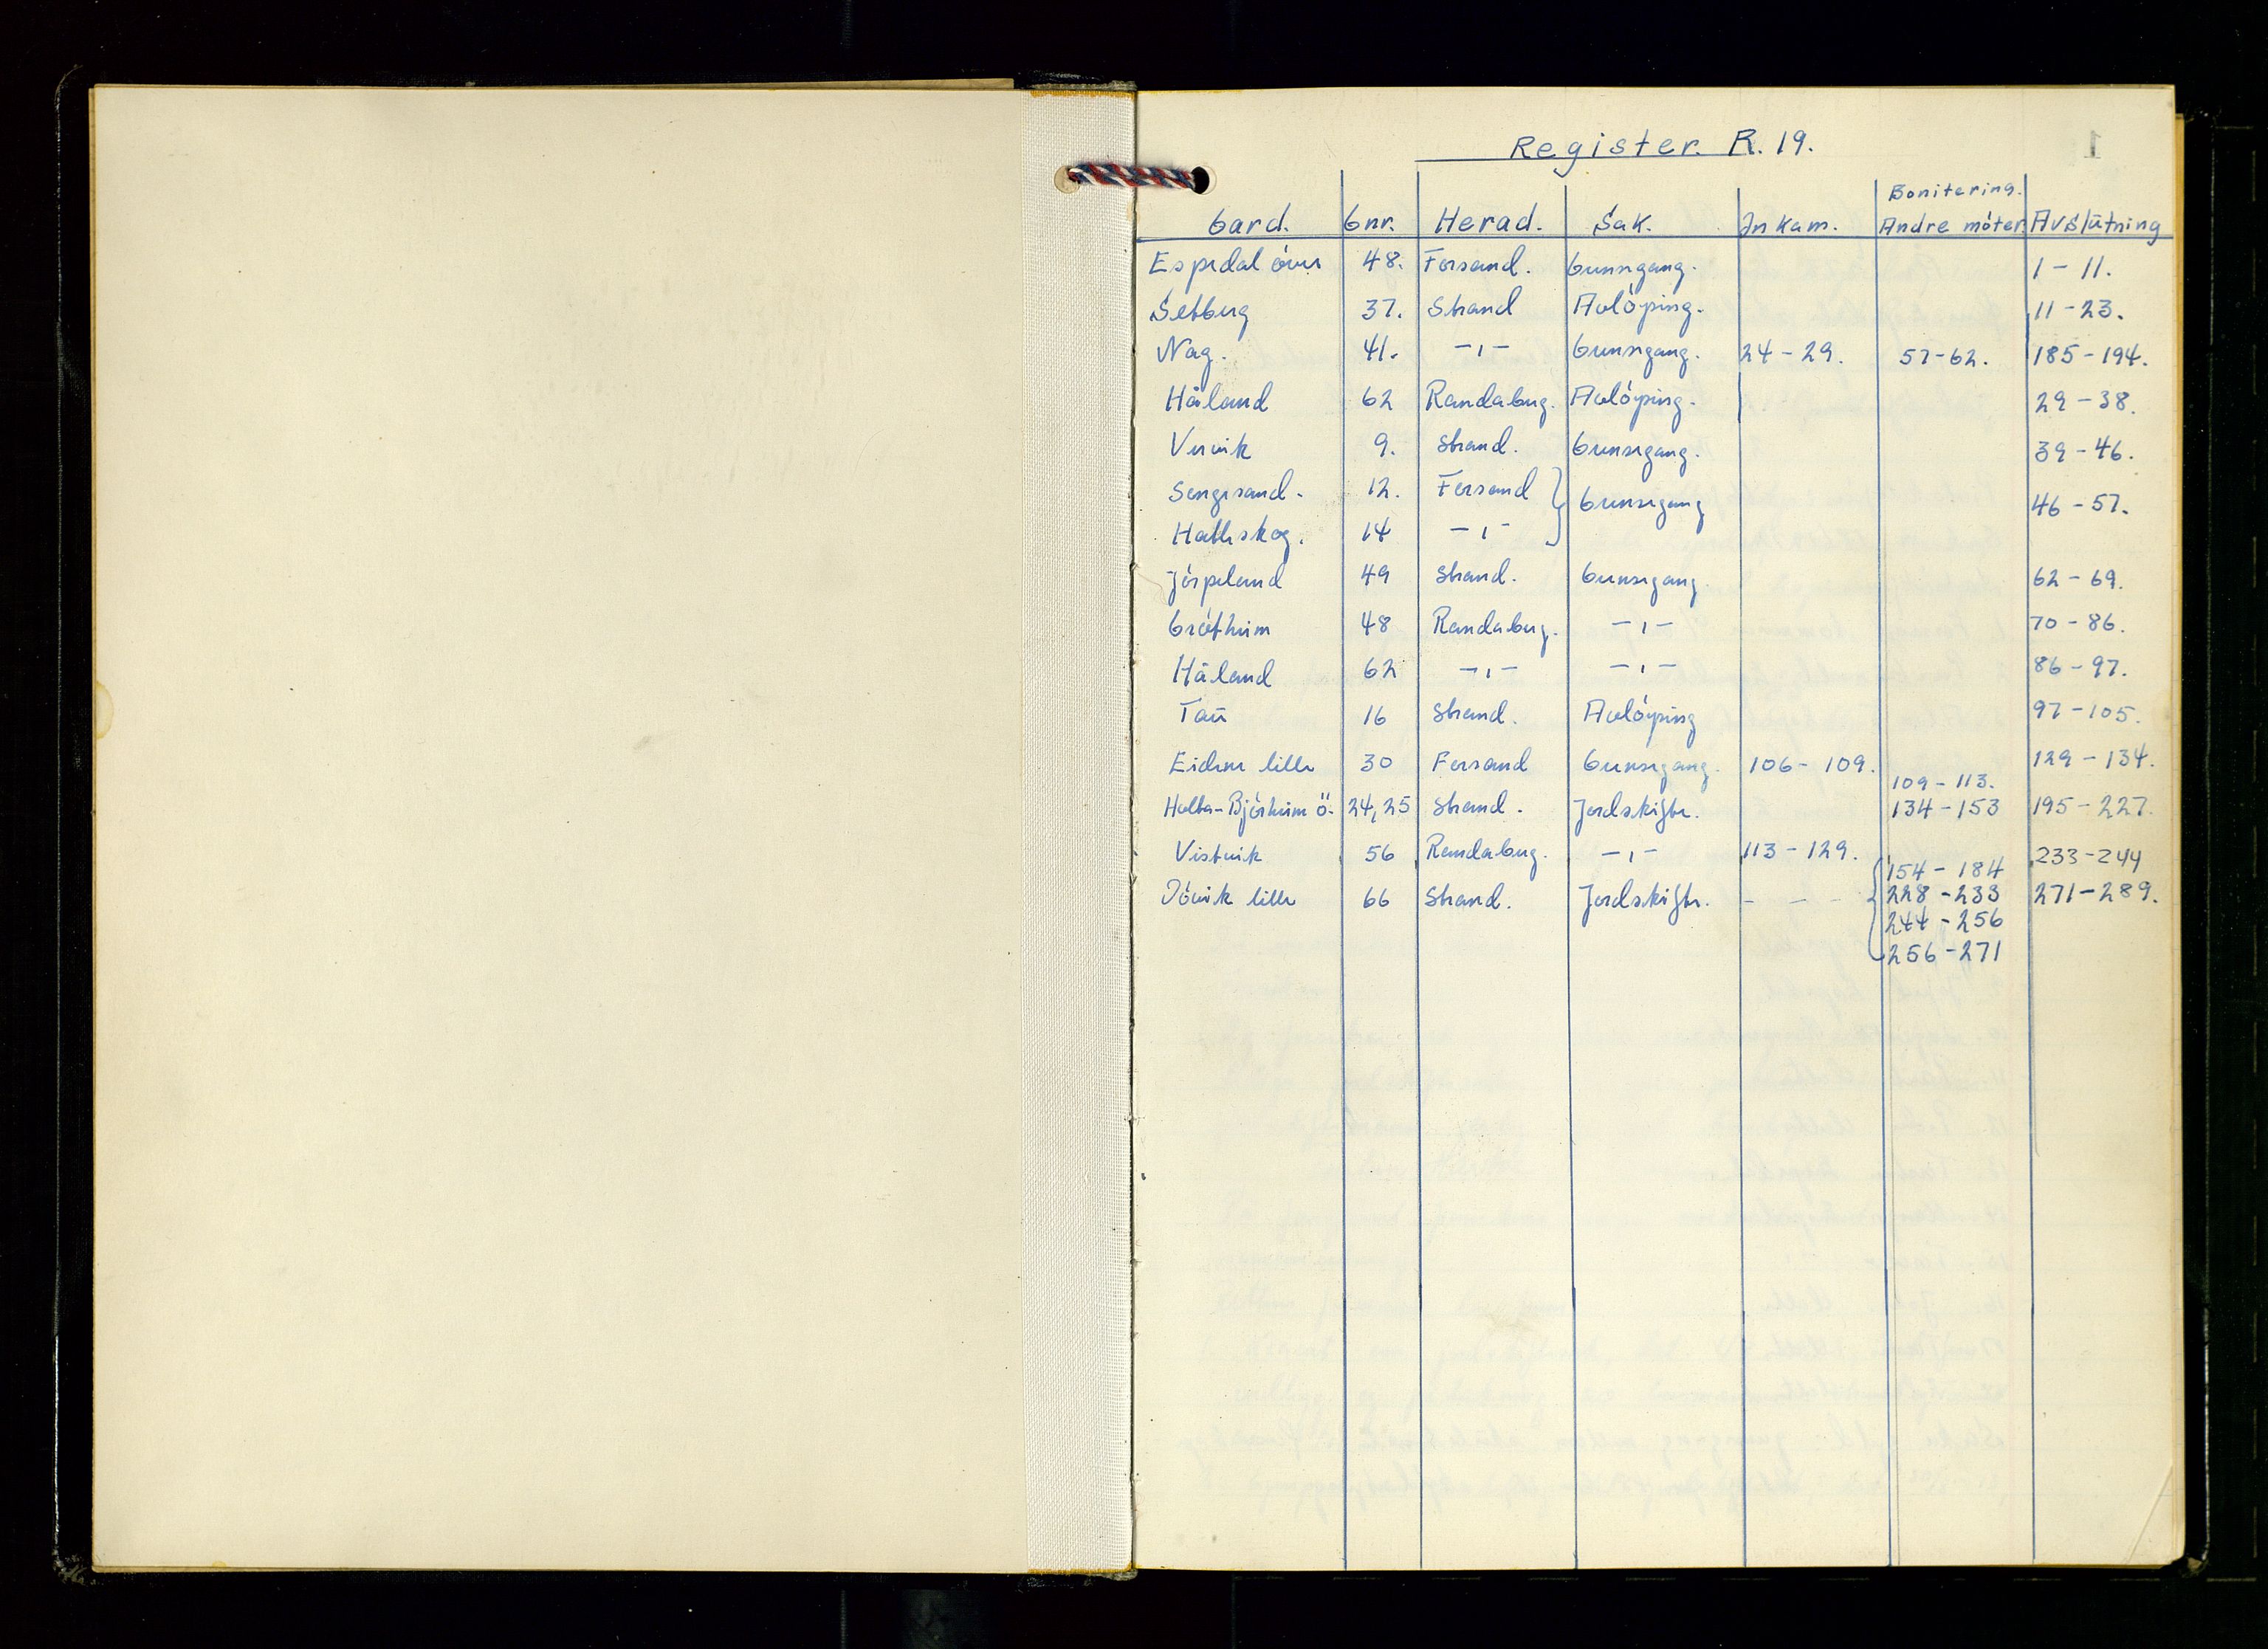 Register. R. 19.
Gard. Gnr. Herad. Sak. Innkam. Bonitering. Andre möter Avslutning
Espedal övre 48. Forsand. Grensegang. 1 - 11.
Setberg 37. Strand Avlöysing. 11 - 23.
Nag. 41. -"- Grensegang. 24 - 29. 57-62. 185 - 194.
Håland 62 Randaberg. Avlöysing. 29 - 38.
Vervik 9. Strand. Grensegang. 39 - 46.
Songesand. 12. Forsand Grensegang 46 - 57.
Hatleskog. 14 -"-
Jörpeland 49 Strand. Grensegang. 62 - 69.
Grötheim 48 Randaberg. -"- 70 - 86.
Håland 62 -"- -"- 86 - 97.
Tau 16 Strand. Avlöysing 97 - 105.
Eidene litle 30 Forsand Grensegang. 106 - 109. 109 - 113. 129 - 134.
Holta-Bjørheim ö. 24, 25 Strand. Jordskifte. 134 - 153 195 - 227.
Vistvik 56 Randaberg. -"- 113 - 129. 233 - 244
Idsvik litle 66 Strand. Jordskifte. - - - 154 - 184 271 - 289.
228 - 233
244 - 256
256 - 271